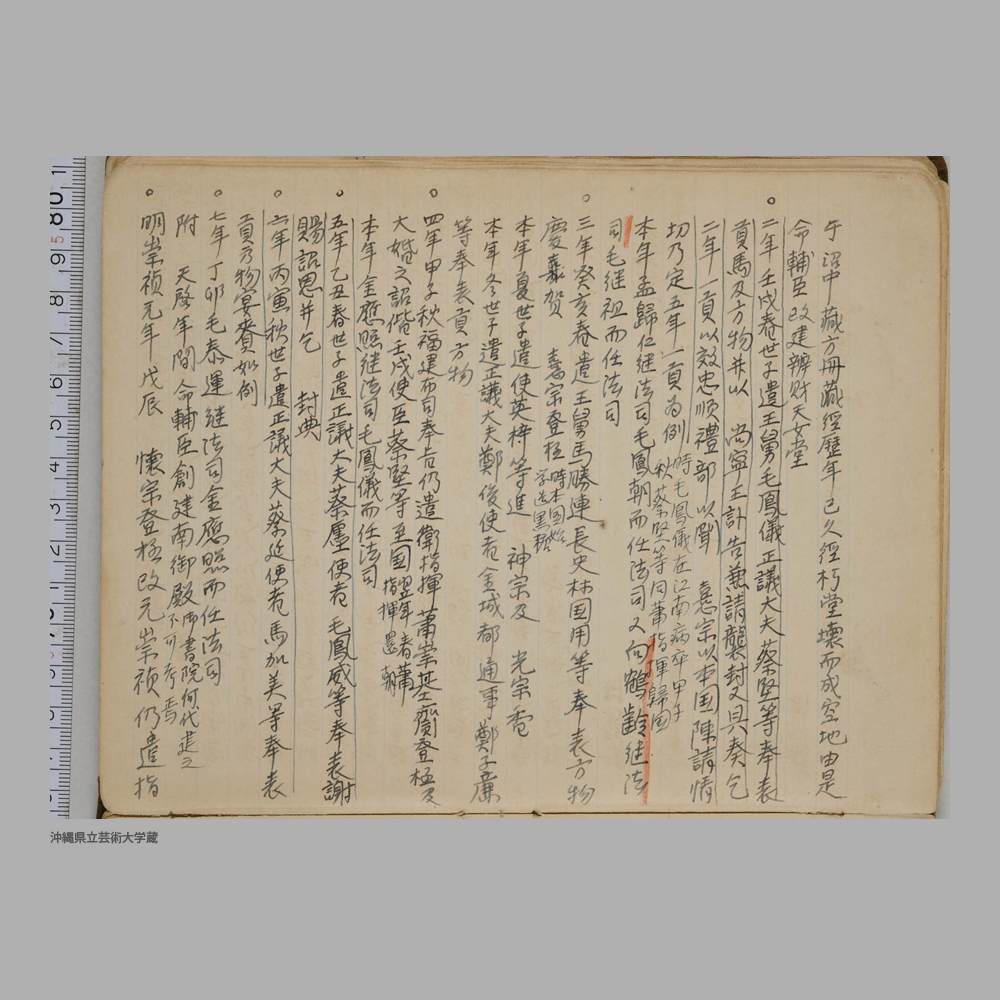 于沼中蔵方冊蔵經歴年已久經朽堂壊而成空地由是
命輔臣改建辨財天女堂
二年壬戌春世子遣王舅毛鳳儀正議大夫蔡堅等奉表
貢馬及方物并以 尚寧王訃告兼請襲封又具奏乞
二年一貢以效忠順禮部以聞 憙宗以本国陳請情
切乃定五年一貢為例時毛鳳儀在江南病卒甲子
秋蔡堅等同蕭指揮歸国
本年孟歸仁継法司毛鳳朝而任法司又向鶴齡継法
司毛継祖而任法司
三年癸亥春遣王舅馬勝連長史林国用等奉表方物
慶嘉賀 憙宗登極時本国始
学造黒糖
本年夏世子遣使英梓等進 神宗及 光宗香
本年冬世子遣正議大夫鄭俊使者金城都通事鄭子廉
等奉表貢方物
四年甲子秋福建布司奉旨仍遣衛指揮蕭崇基齎登極及
大婚之詔偕壬戌使臣蔡堅等至国翌年者蕭
指揮還朝
本年金應照継法司毛鳳儀而任法司
五年乙丑春世子遣正議大夫蔡廛使者毛鳳威等奉表謝
賜詔恩并乞 封典
六年丙寅秋世子遣正議大夫蔡延使者馬加美等奉表
貢方物宴賚如例
七年丁卯毛泰運継法司金應照而任法司
附 天啓年間命輔臣創建南御殿御書院何代建之
不可考焉
明崇禎元年戊辰 懐宗登極改元崇禎仍遣指
沖縄県立芸術大学蔵